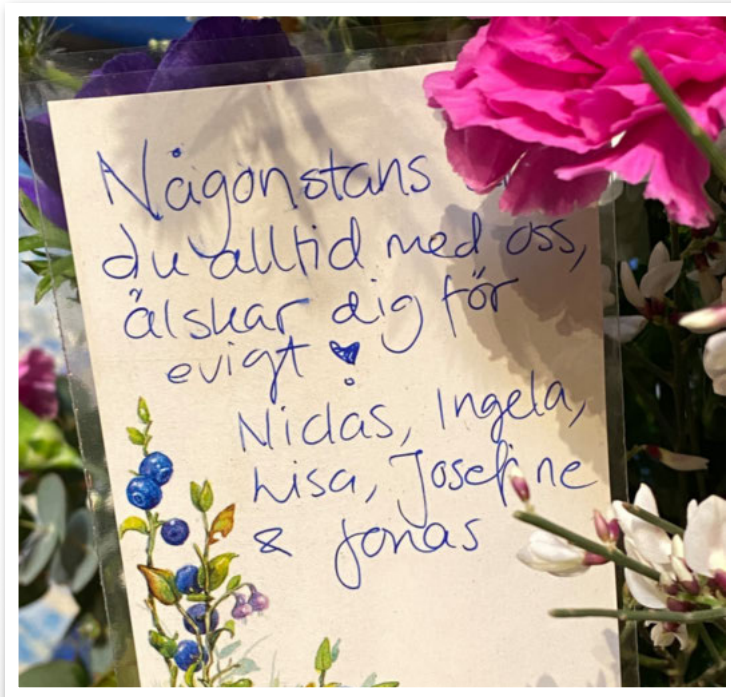 Någonstans
du alltid med oss,
älskar dig för
evigt
Niclas, Ingela,
Lisa, Josefine
& Jonas